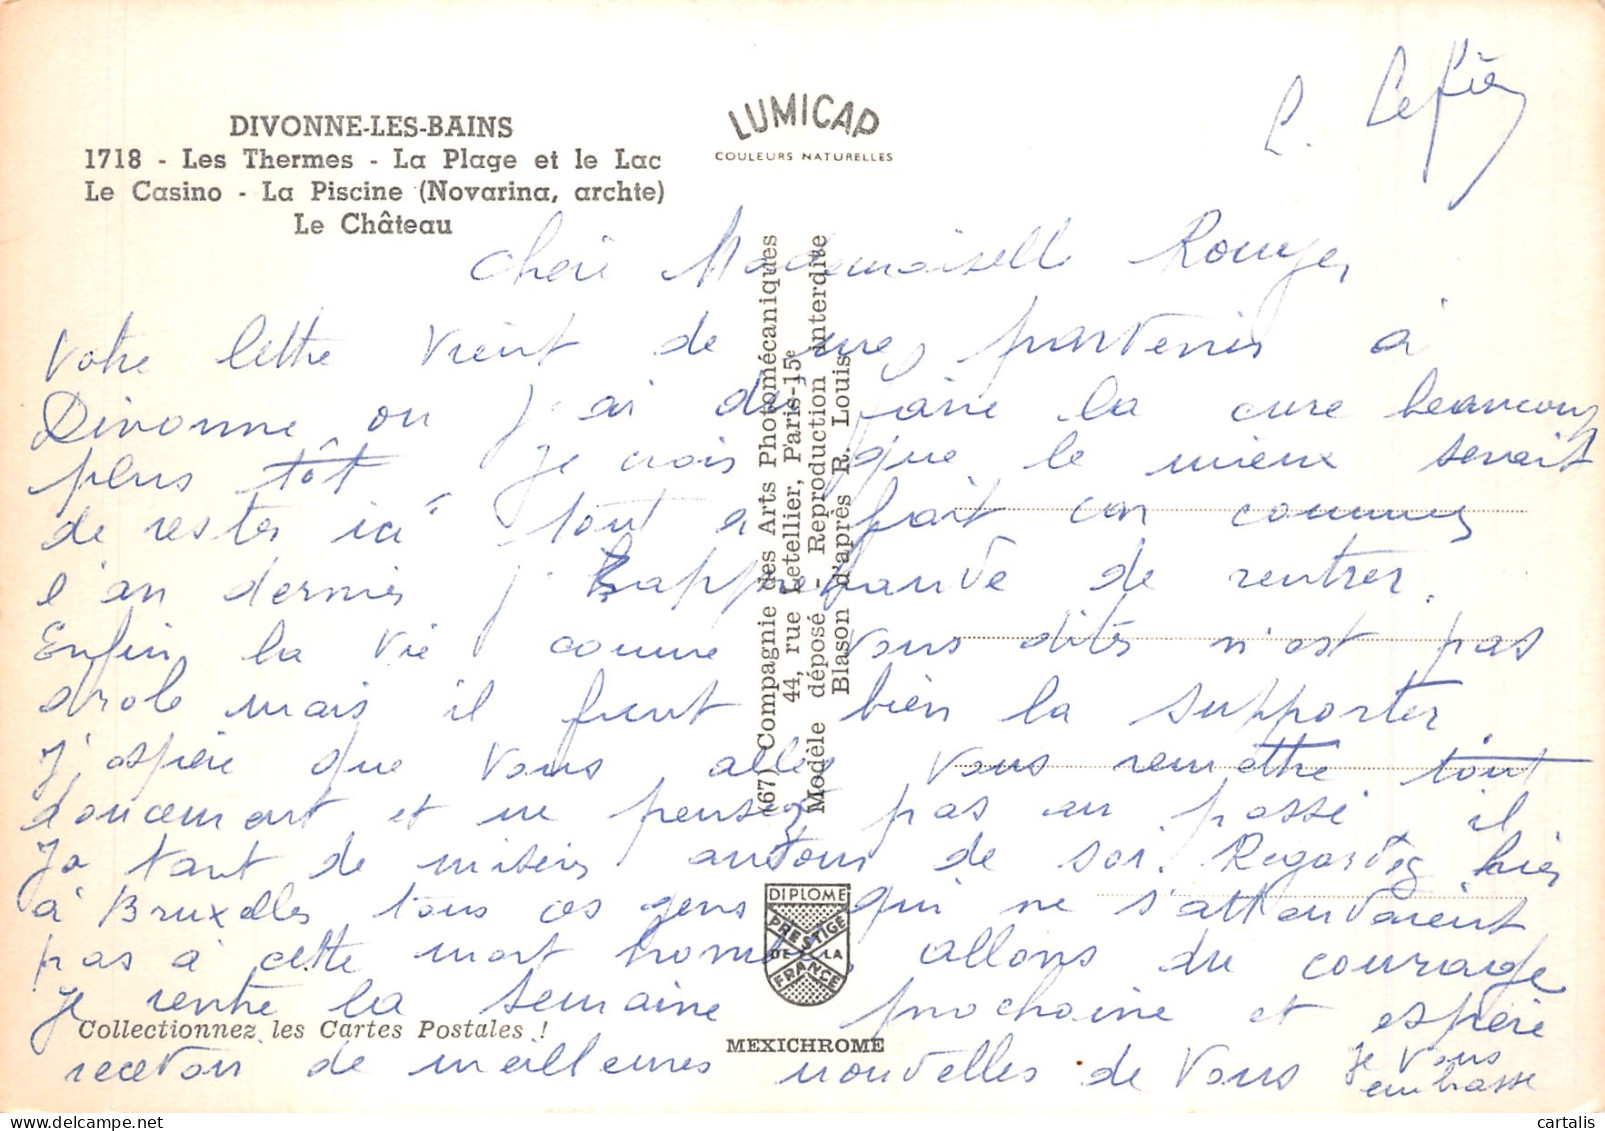 DIVONNE-LES-BAINS
1718 - Les Thermes - La Plage et le Lac
Le Casino - La Piscine (Novarina, archte)
Le Château
LUMICAP
COULEURS NATURELLES
Chère Mademoiselle Rouyer
Votre lettre vient de me parvenir à
Divonne ou j'ai du faire la cure beaucoup
plus tôt je crois que le mieux serait
de rester ici tout à fait car comme
l'an dernier j'appréhende de rentrer.
Enfin la vie comme vous dites n'est pas
drole mais il faut bien la supporter
J'espère que vous allez vous remettre tout
doucement et ne pensez pas au passé, il
Ya tant de misères autour de soi. Regardez hier
à Bruxelles tous ces gens qui ne s'attendaient
pas à cette mort allons du courage
Je rentre la semaine prochaine et espère
recevoir de meilleures nouvelles de vous je vous
embrasse
(67) Compagnie des Arts Photomécaniques
44, rue Letellier, Paris-15e
Modèle déposé - Reproduction interdite
Blason d'après R. Louis
DIPLOME
PRESTIGE
DE LA
FRANCE
Collectionnez les Cartes Postales !
MEXICHROME
cartalis